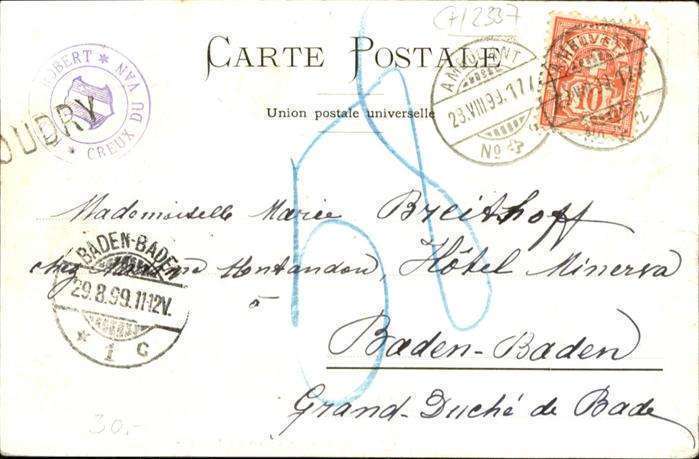 CH2337
CARTE POSTALE
Union postale universelle
ROBERT * CREUX DU VAN *
OUDRY
AMBULANT
23.VIII.99.
No
10
Mademoiselle Marie Breithoff
chez Madame Montandon, Hôtel Minerva
à
Baden-Baden
Grand-Duché de Bade
BADEN-BADEN
29.8.99.11-12V.
* 1 c
30.-